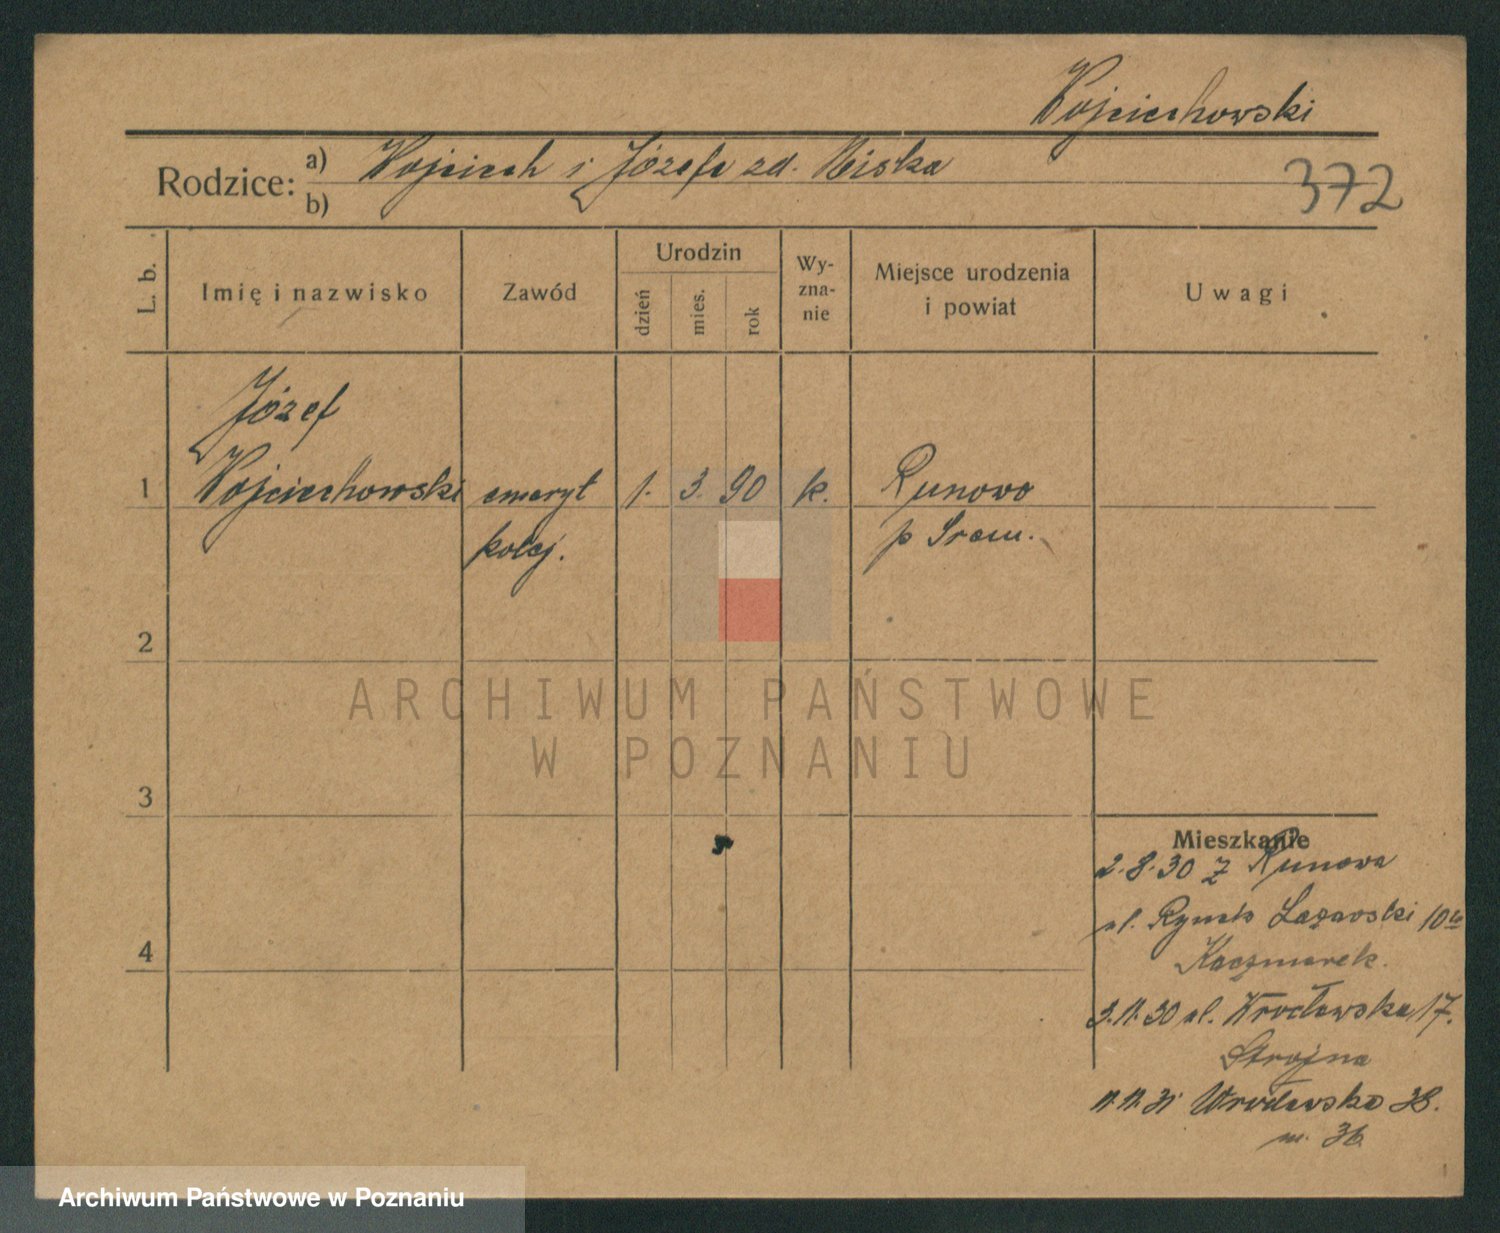 Wojciechowski
Rodzice: a) Wojciech i Józefa zd. Niska
b)
372
L. b. Imię i nazwisko Zawód Urodzin dzień mies. rok Wy-zna-nie Miejsce urodzenia i powiat Uwagi
Józef
1 Wojciechowski emeryt 1. 3. 90 k. Runowo
kolej. p Śrem.
2
3
4
Mieszkanie
2.8.30 z Runowa
ul. Rynek Łazarski 10
Kaczmarek.
3.11.30 ul. Wrocławska 17.
Strojna
11.11.31 Wrocławska 38.
m. 36
ARCHIWUM PAŃSTWOWE
W POZNANIU
Archiwum Państwowe w Poznaniu